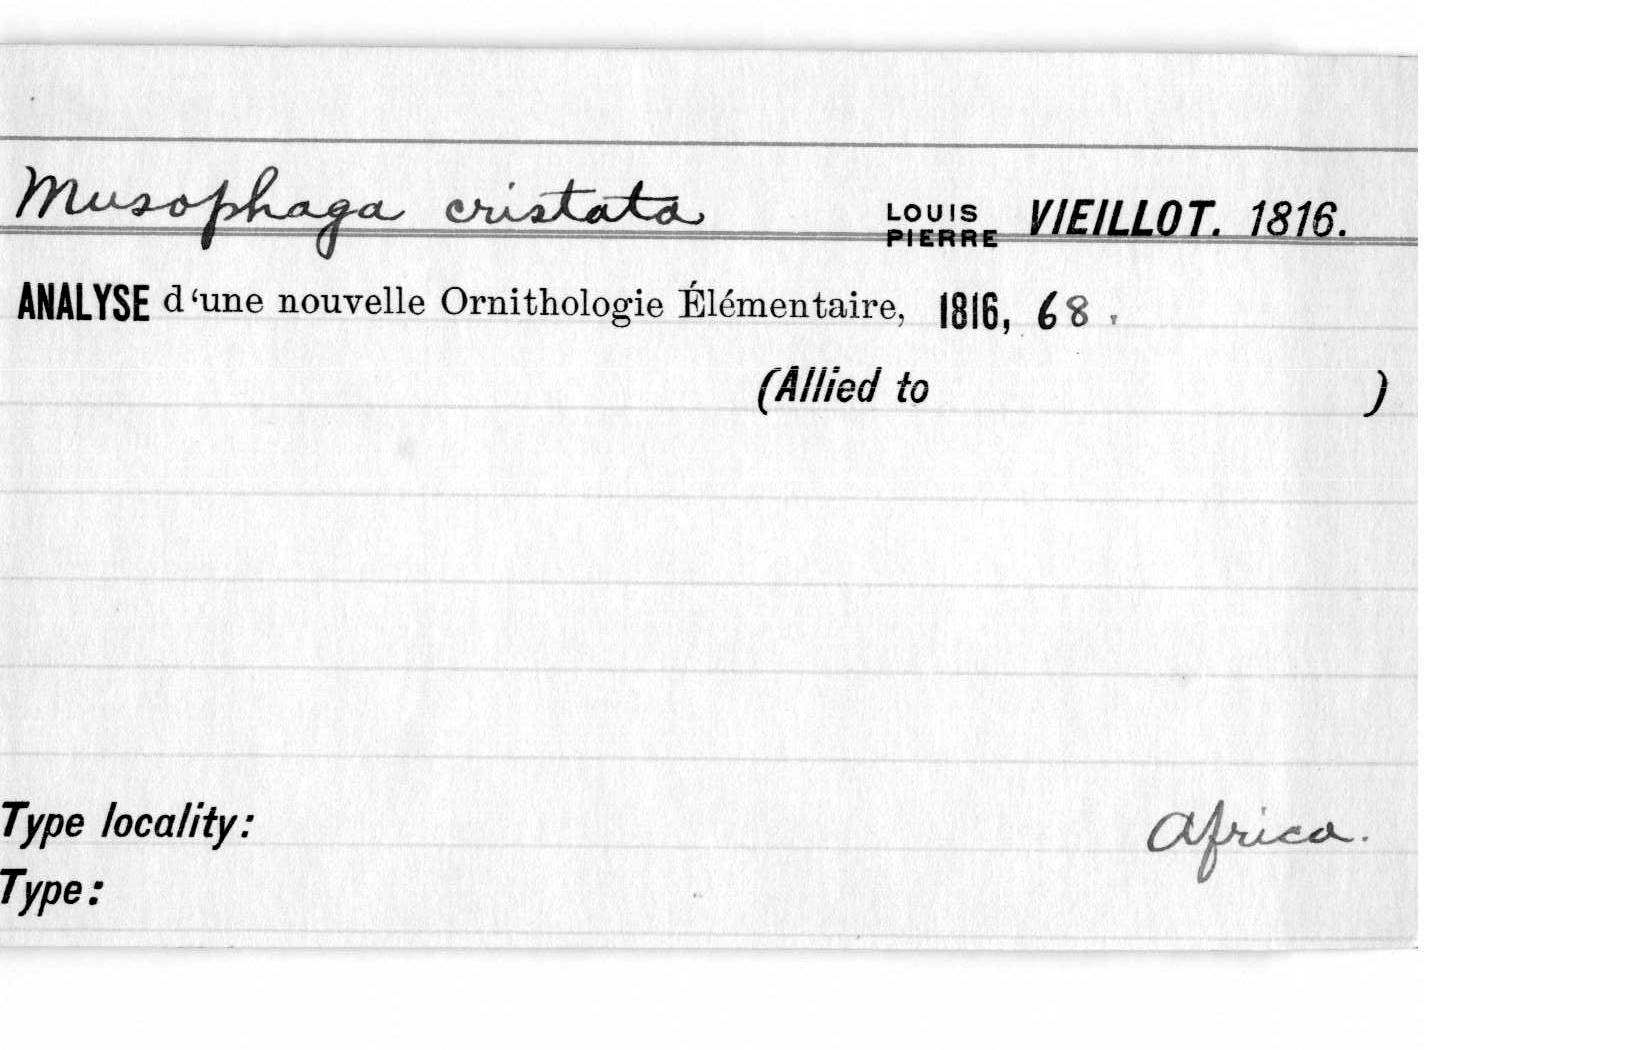 Musophaga cristata LOUIS PIERRE VIEILLOT. 1816.
ANALYSE d‘une nouvelle Ornithologie Élémentaire, 1816, 68.
(Allied to )
Type locality: Africa.
Type: